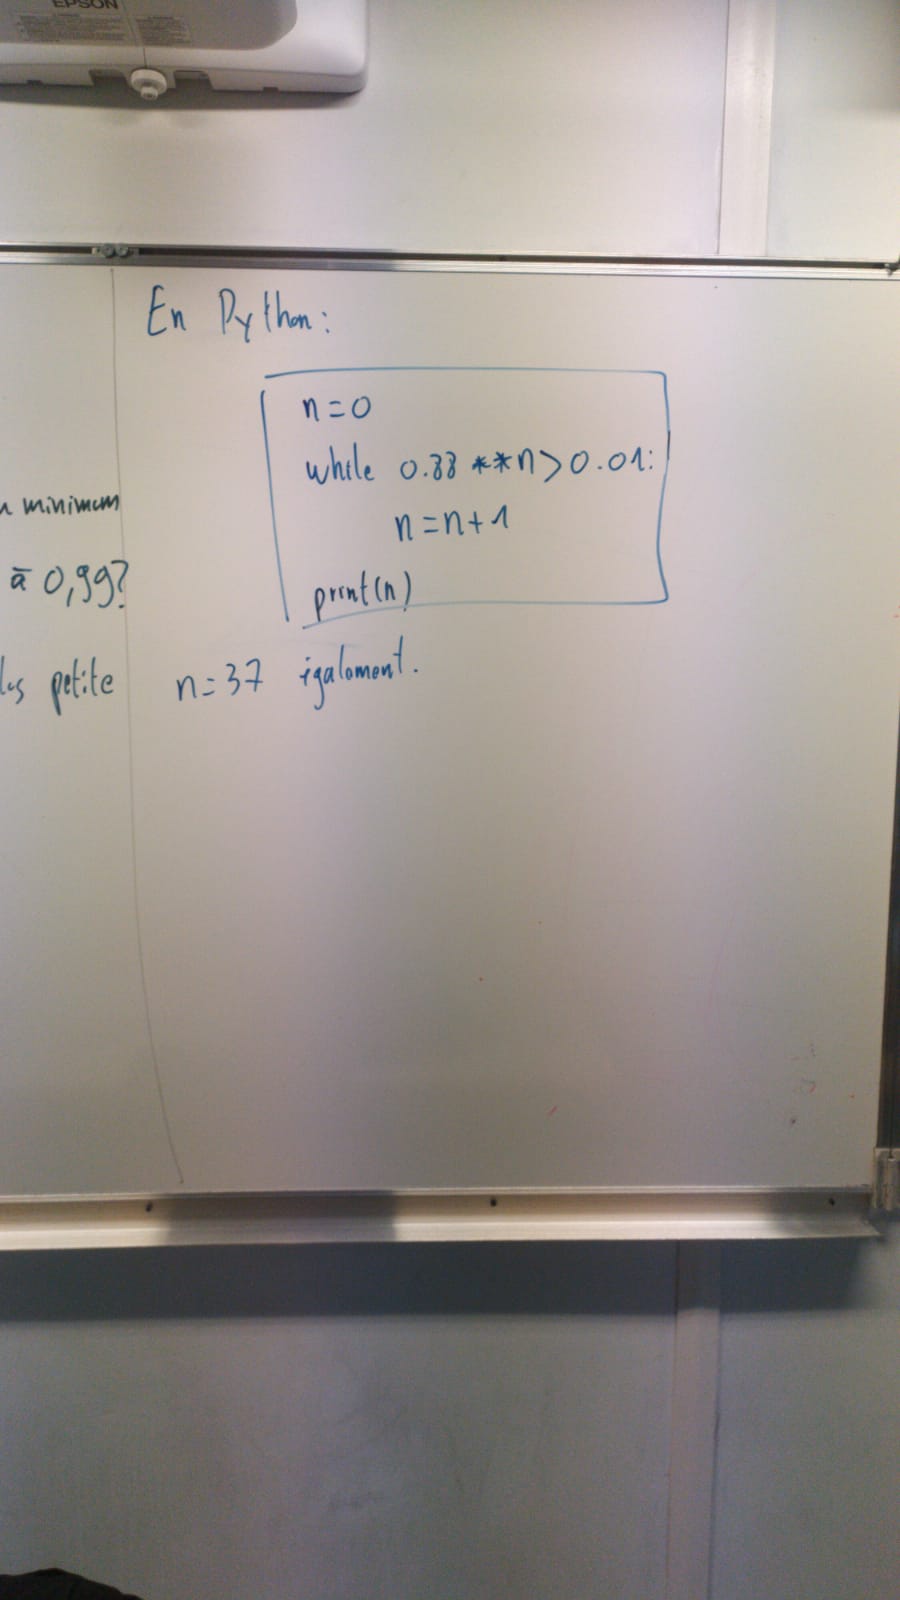 EPSON
En Python:
n=0
while 0.88 **n>0.01:
n=n+1
print(n)
n=37 également.
minimum
à 0,99?
petite